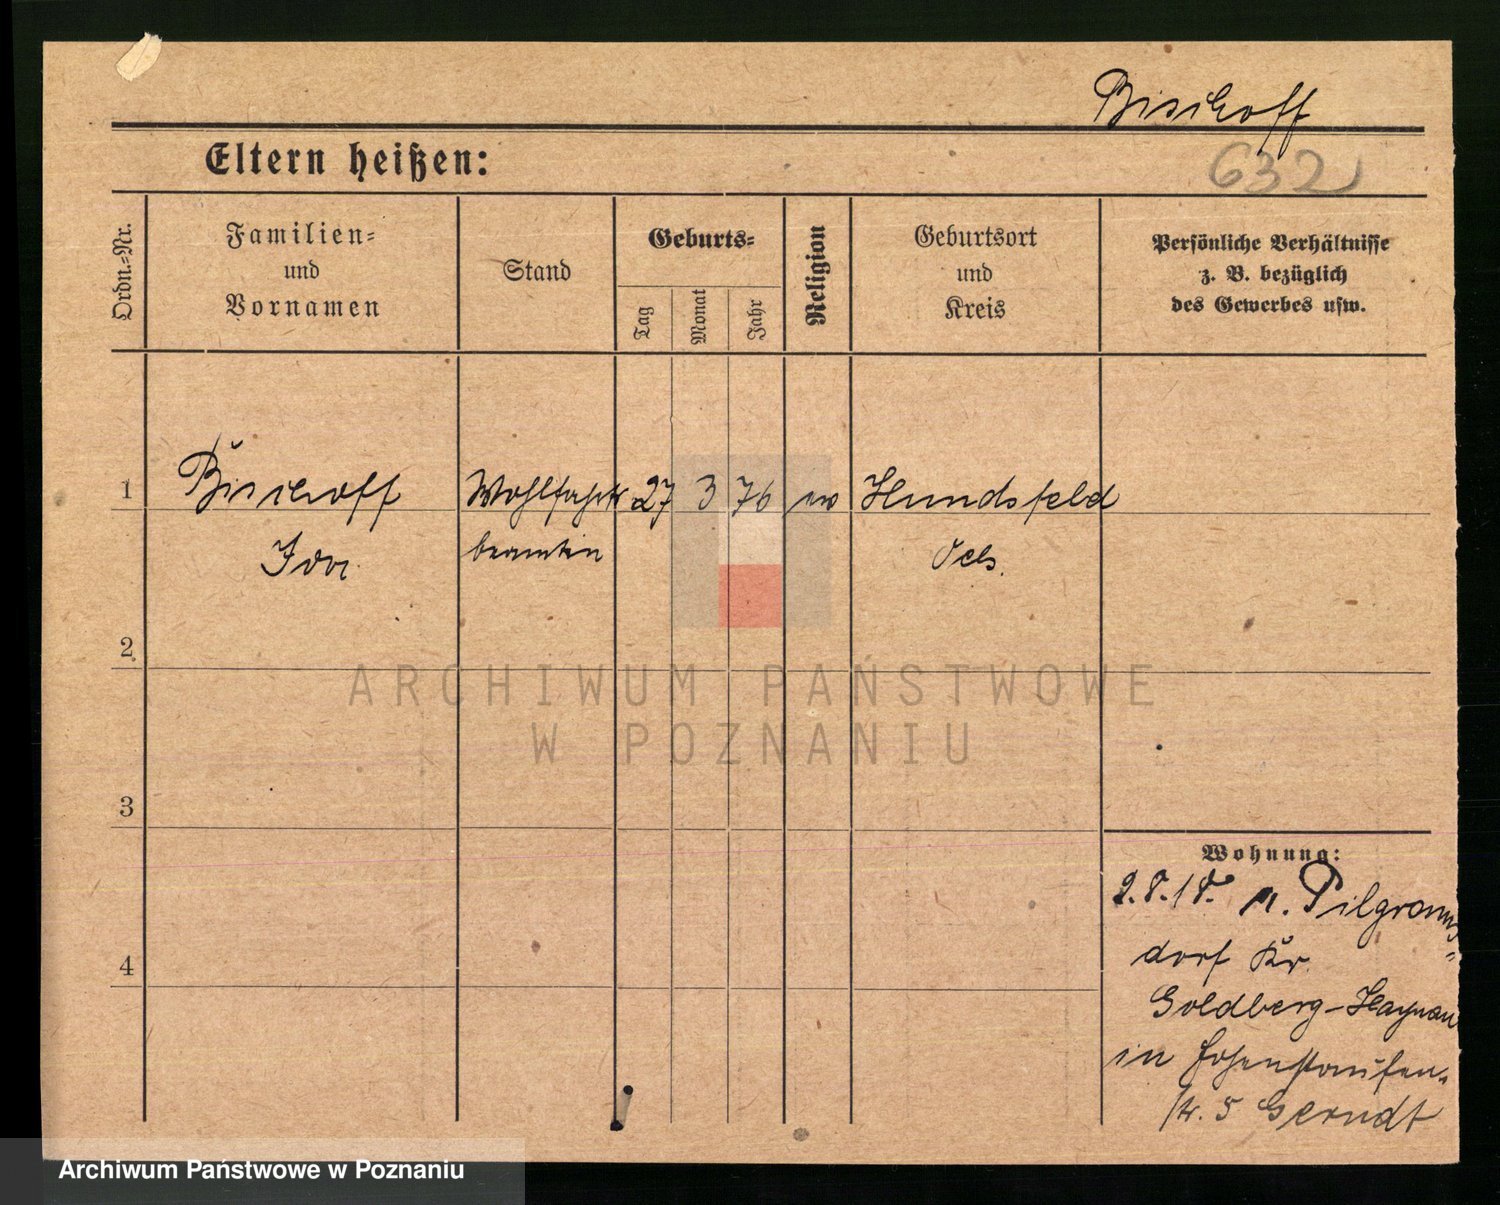 Bischoff
Eltern heißen:
632
Ordn.-Nr.
Familien-
und
Vornamen
Stand
Geburts-
Tag
Monat
Jahr
Religion
Geburtsort
und
Kreis
Persönliche Verhältnisse
z. B. bezüglich
des Gewerbes usw.
1
Bischoff
Wohlfahrts
27
3
76
ev
Hundsfeld
Ida
beamtin
Oels.
2
3
4
ARCHIWUM PAŃSTWOWE
W POZNANIU
Wohnung:
2.8.18. n. Pilgrams-
dorf Kr.
Goldberg-Haynau
in Hohenstaufen-
str. 5 Gerndt
Archiwum Państwowe w Poznaniu